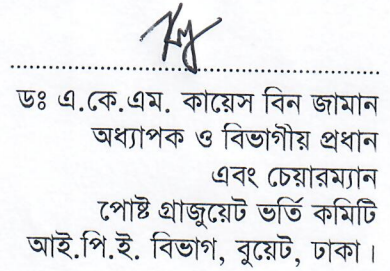 ডঃ এ.কে.এম. কায়েস বিন জামান
অধ্যাপক ও বিভাগীয় প্রধান
এবং চেয়ারম্যান
পোষ্ট গ্রাজুয়েট ভর্তি কমিটি
আই.পি.ই. বিভাগ, বুয়েট, ঢাকা।